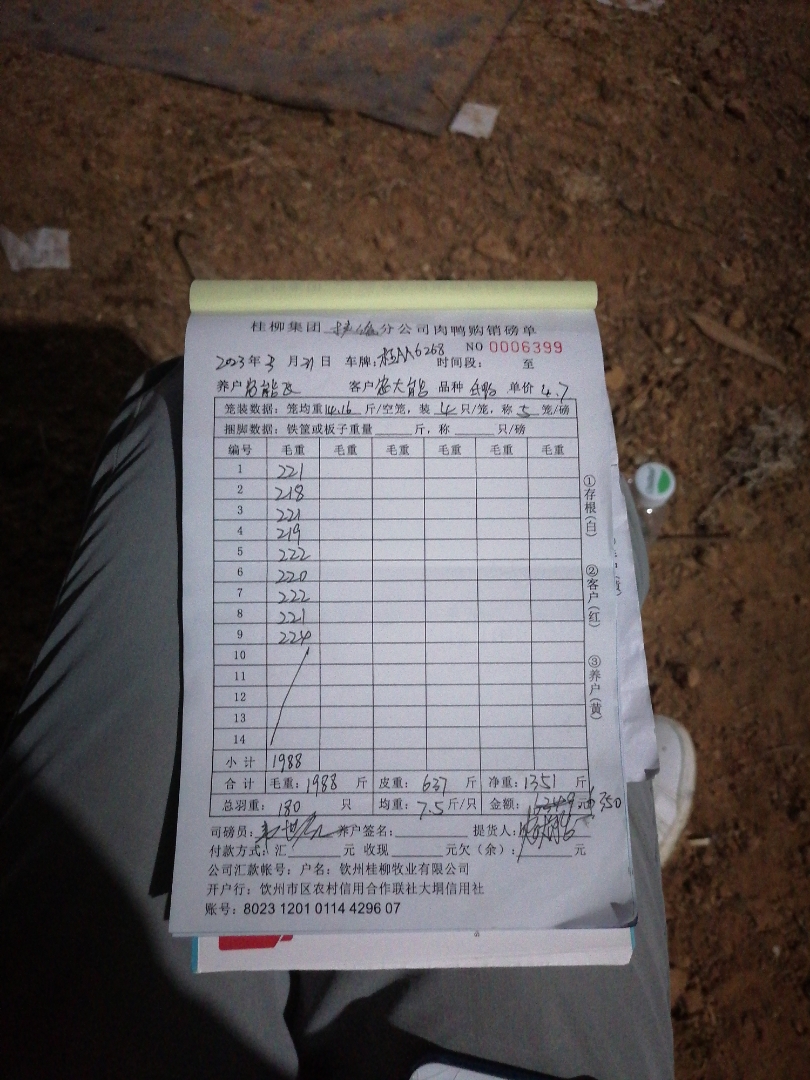 桂柳集团 分公司肉鸭购销磅单
NO 0006399
2023年3月21日 车牌:桂AA6268 时间段: 至
养户 客户 品种 单价4.7
笼装数据:笼均重14.16斤/空笼,装4只/笼,称5笼/磅
捆脚数据:铁篮或板子重量 斤,称 只/磅
编号 毛重 毛重 毛重 毛重 毛重 毛重
1 221
2 218
3 221
4 219
5 222
6 220
7 222
8 221
9 224
10
11
12
13
14
小计 1988
合计 毛重:1988斤 皮重:637斤 净重:1351斤
总羽重:180只 均重:7.5斤/只 金额: 元 6350
司磅员: 养户签名: 提货人:
付款方式:汇 元 收现 元欠(余): 元
公司汇款帐号:户名:钦州桂柳牧业有限公司
开户行:钦州市区农村信用合作联社大垌信用社
账号:8023 1201 0114 4296 07
①存根(白)
②客户(红)
③养户(黄)